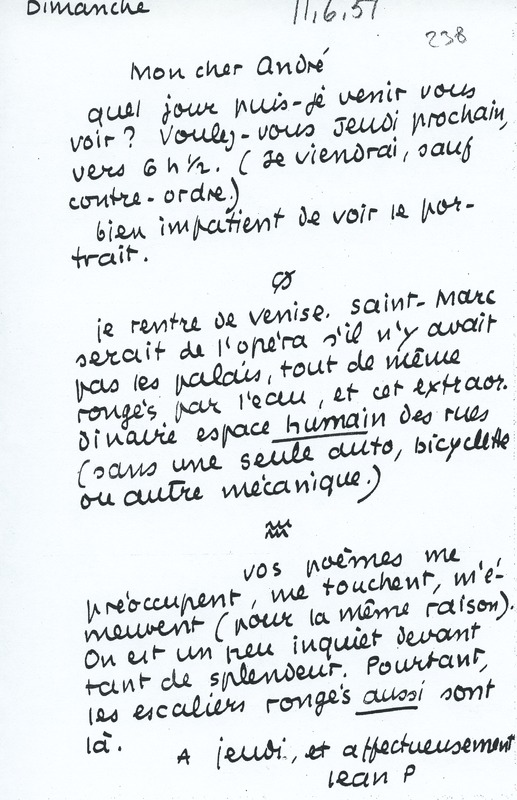 Dimanche 11.6.57
238
Mon cher André
quel jour puis-je venir vous
voir ? Voulez-vous Jeudi prochain,
vers 6 h 1/2. (Je viendrai, sauf
contre-ordre.)
bien impatient de voir le por-
trait.
je rentre de Venise. Saint-Marc
serait de l'opéra s'il n'y avait
pas les palais, tout de même
rongés par l'eau, et cet extraor-
dinaire espace humain des rues
(sans une seule auto, bicyclette
ou autre mécanique.)
vos poèmes me
préoccupent, me touchent, m'é-
meuvent (pour la même raison).
On est un peu inquiet devant
tant de splendeur. Pourtant,
les escaliers rongés aussi sont
là.
A jeudi, et affectueusement
Jean P